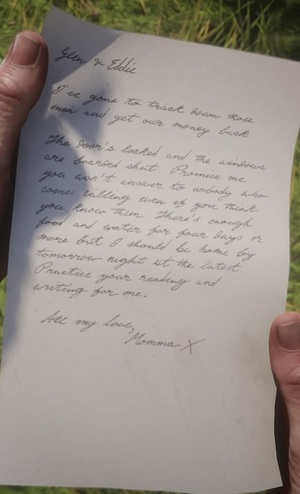 Glen & Eddie
I've gone to track down those
men and get our money back
The door's locked and the windows
are boarded shut. Promise me
you won't answer to nobody who
comes calling even if you think
you know them. There's enough
food and water for four days or
more but I should be home by
tomorrow night at the latest.
Practice your reading and
writing for me.
All my love,
Momma X